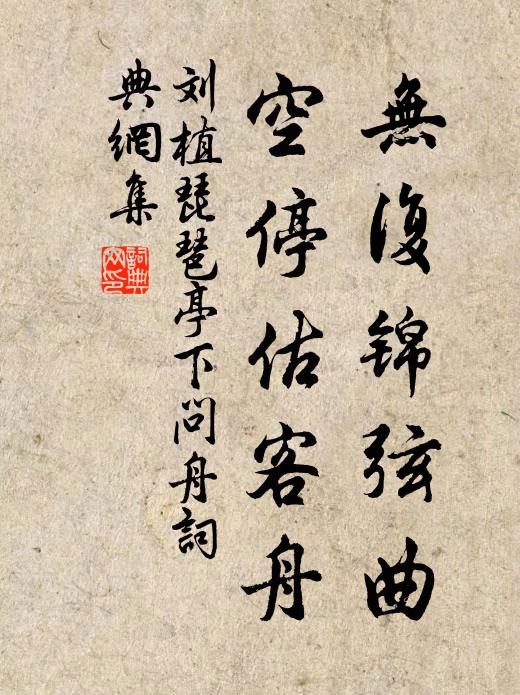 無復錦弦曲
空停估客舟
刘植琵琶亭下問舟詞
典網集
詞典
网印